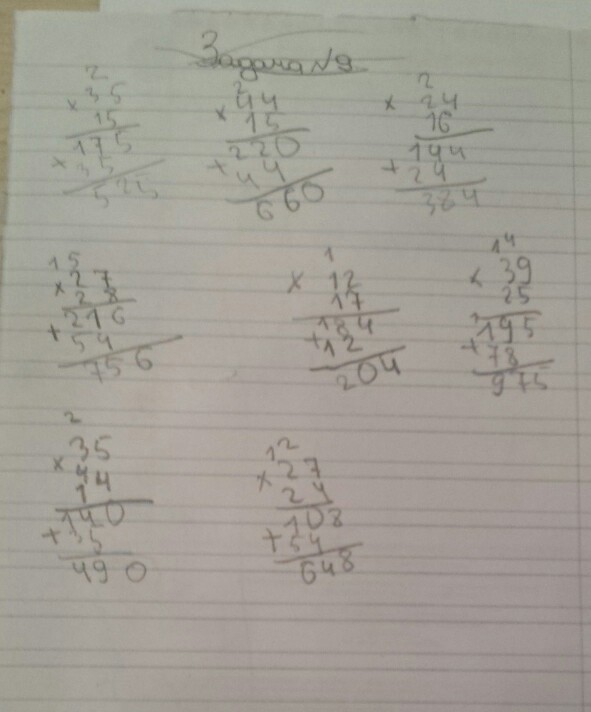 Задача №9
2 2 2
× 35 × 44 × 24
15 15 16
175 220 144
+ 35 + 44 + 24
525 660 384
15 1 14
× 27 × 12 × 39
28 17 25
216 184 195
+ 54 + 12 + 78
756 204 975
2 12
× 35 × 27
14 24
140 108
+ 35 + 54
490 648